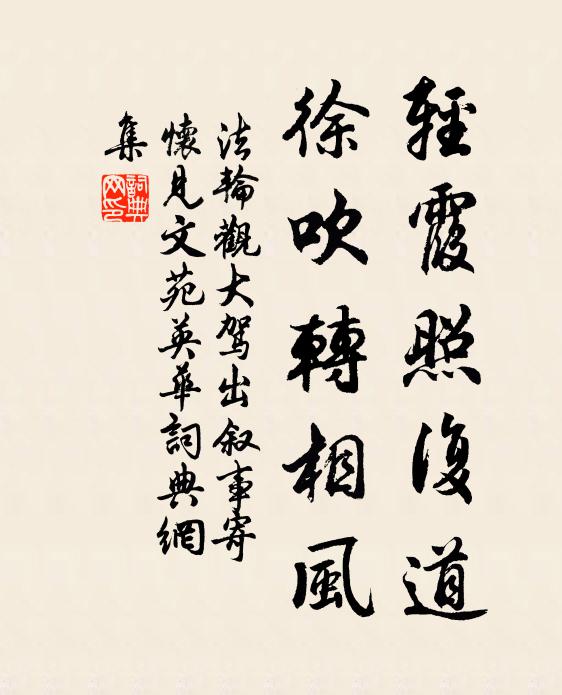 輕霞照復道
徐吹轉相風
法輪觀大駕出叙事寄
懷見文苑英華詞典網
集
詞典
网印